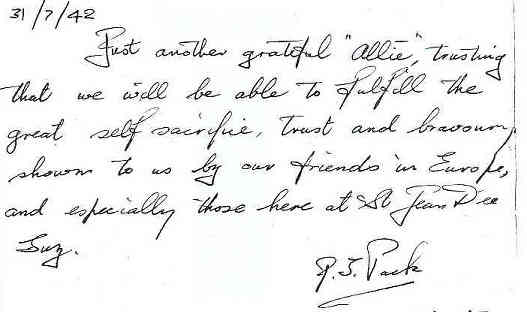 31/7/42
Just another grateful "Allie", trusting
that we will be able to fulfill the
great self sacrifice, trust and bravoury
shown to us by our friends in Europe,
and especially those here at St Jean Dee
Luz.
R. J. Pack